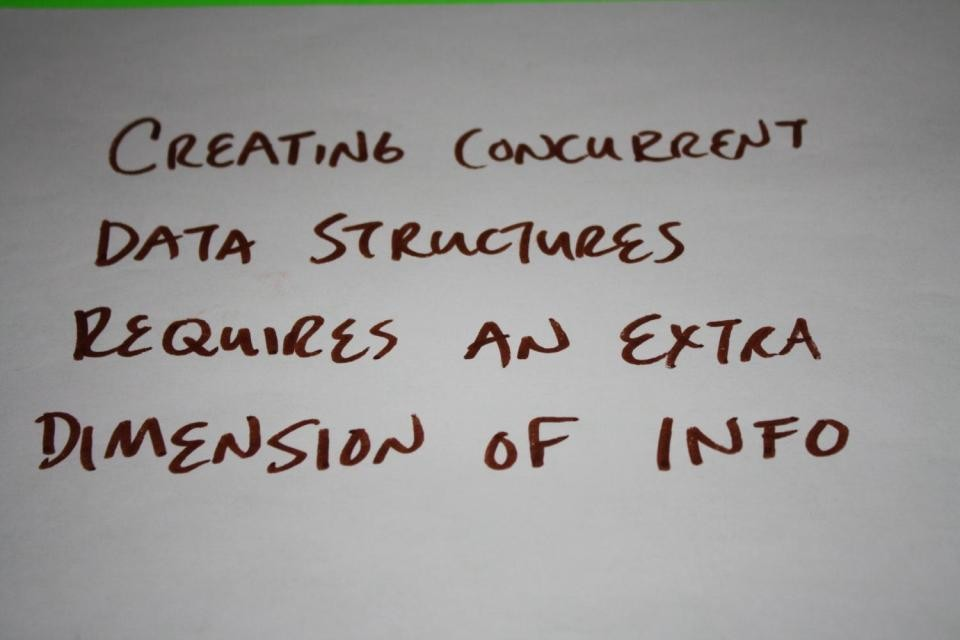 CREATING CONCURRENT
DATA STRUCTURES
REQUIRES AN EXTRA
DIMENSION OF INFO